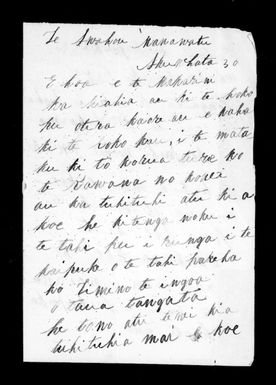 Te Awahou Manawatu
Akuhata 30
E hoa e te Makarini
ka hiahia au ki te
pu otira kaore au e kaha
ki te hoko pau, i te mata
ku ki to korua ture ko
te Kawana no konei
au ka tuhituhi atu ki a
koe he kitenga noku i
te tahi pu i runga i te
kaipuke o te tahi pakeha
ko Timino te ingoa
o taua tangata
he tono atu tenei kia
tuhituhia mai e koe